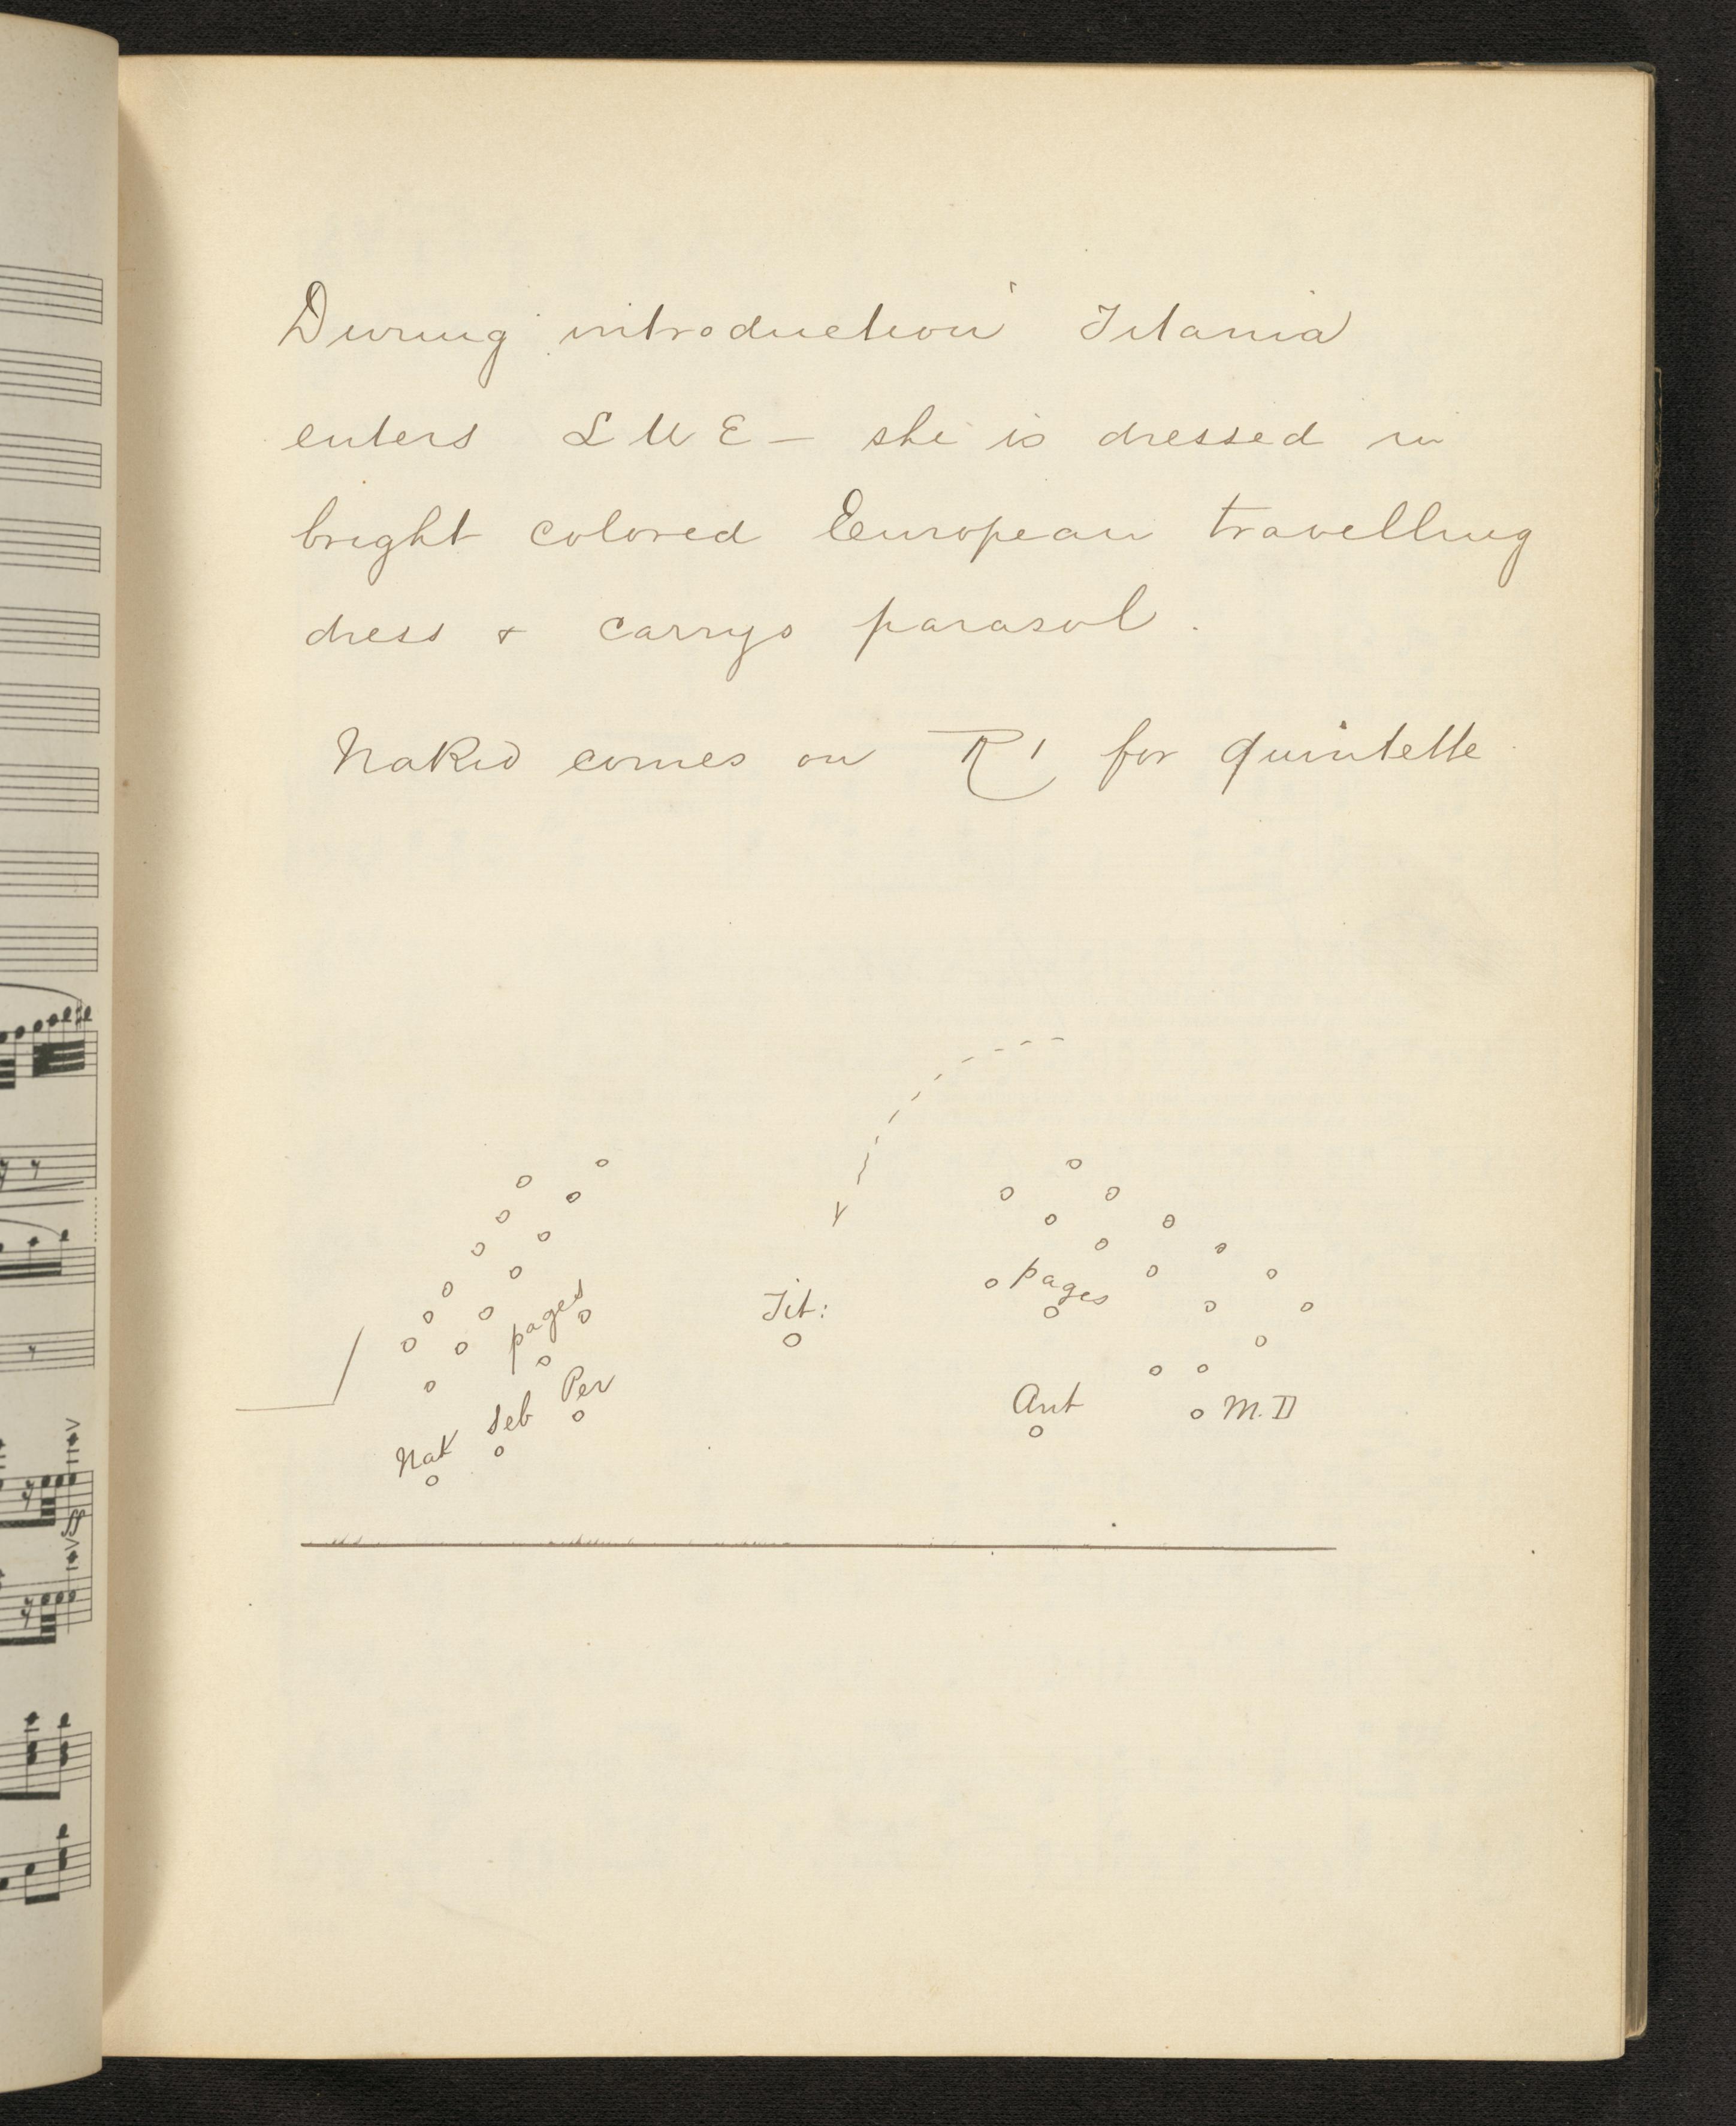 During introduction Titania
enters L U E — she is dressed in
bright colored European travelling
dress & carrys parasol.
Nakid comes on R 1 for quintette
pages
Tit:
pages
Nak Seb Per
Ant
M. D
ff